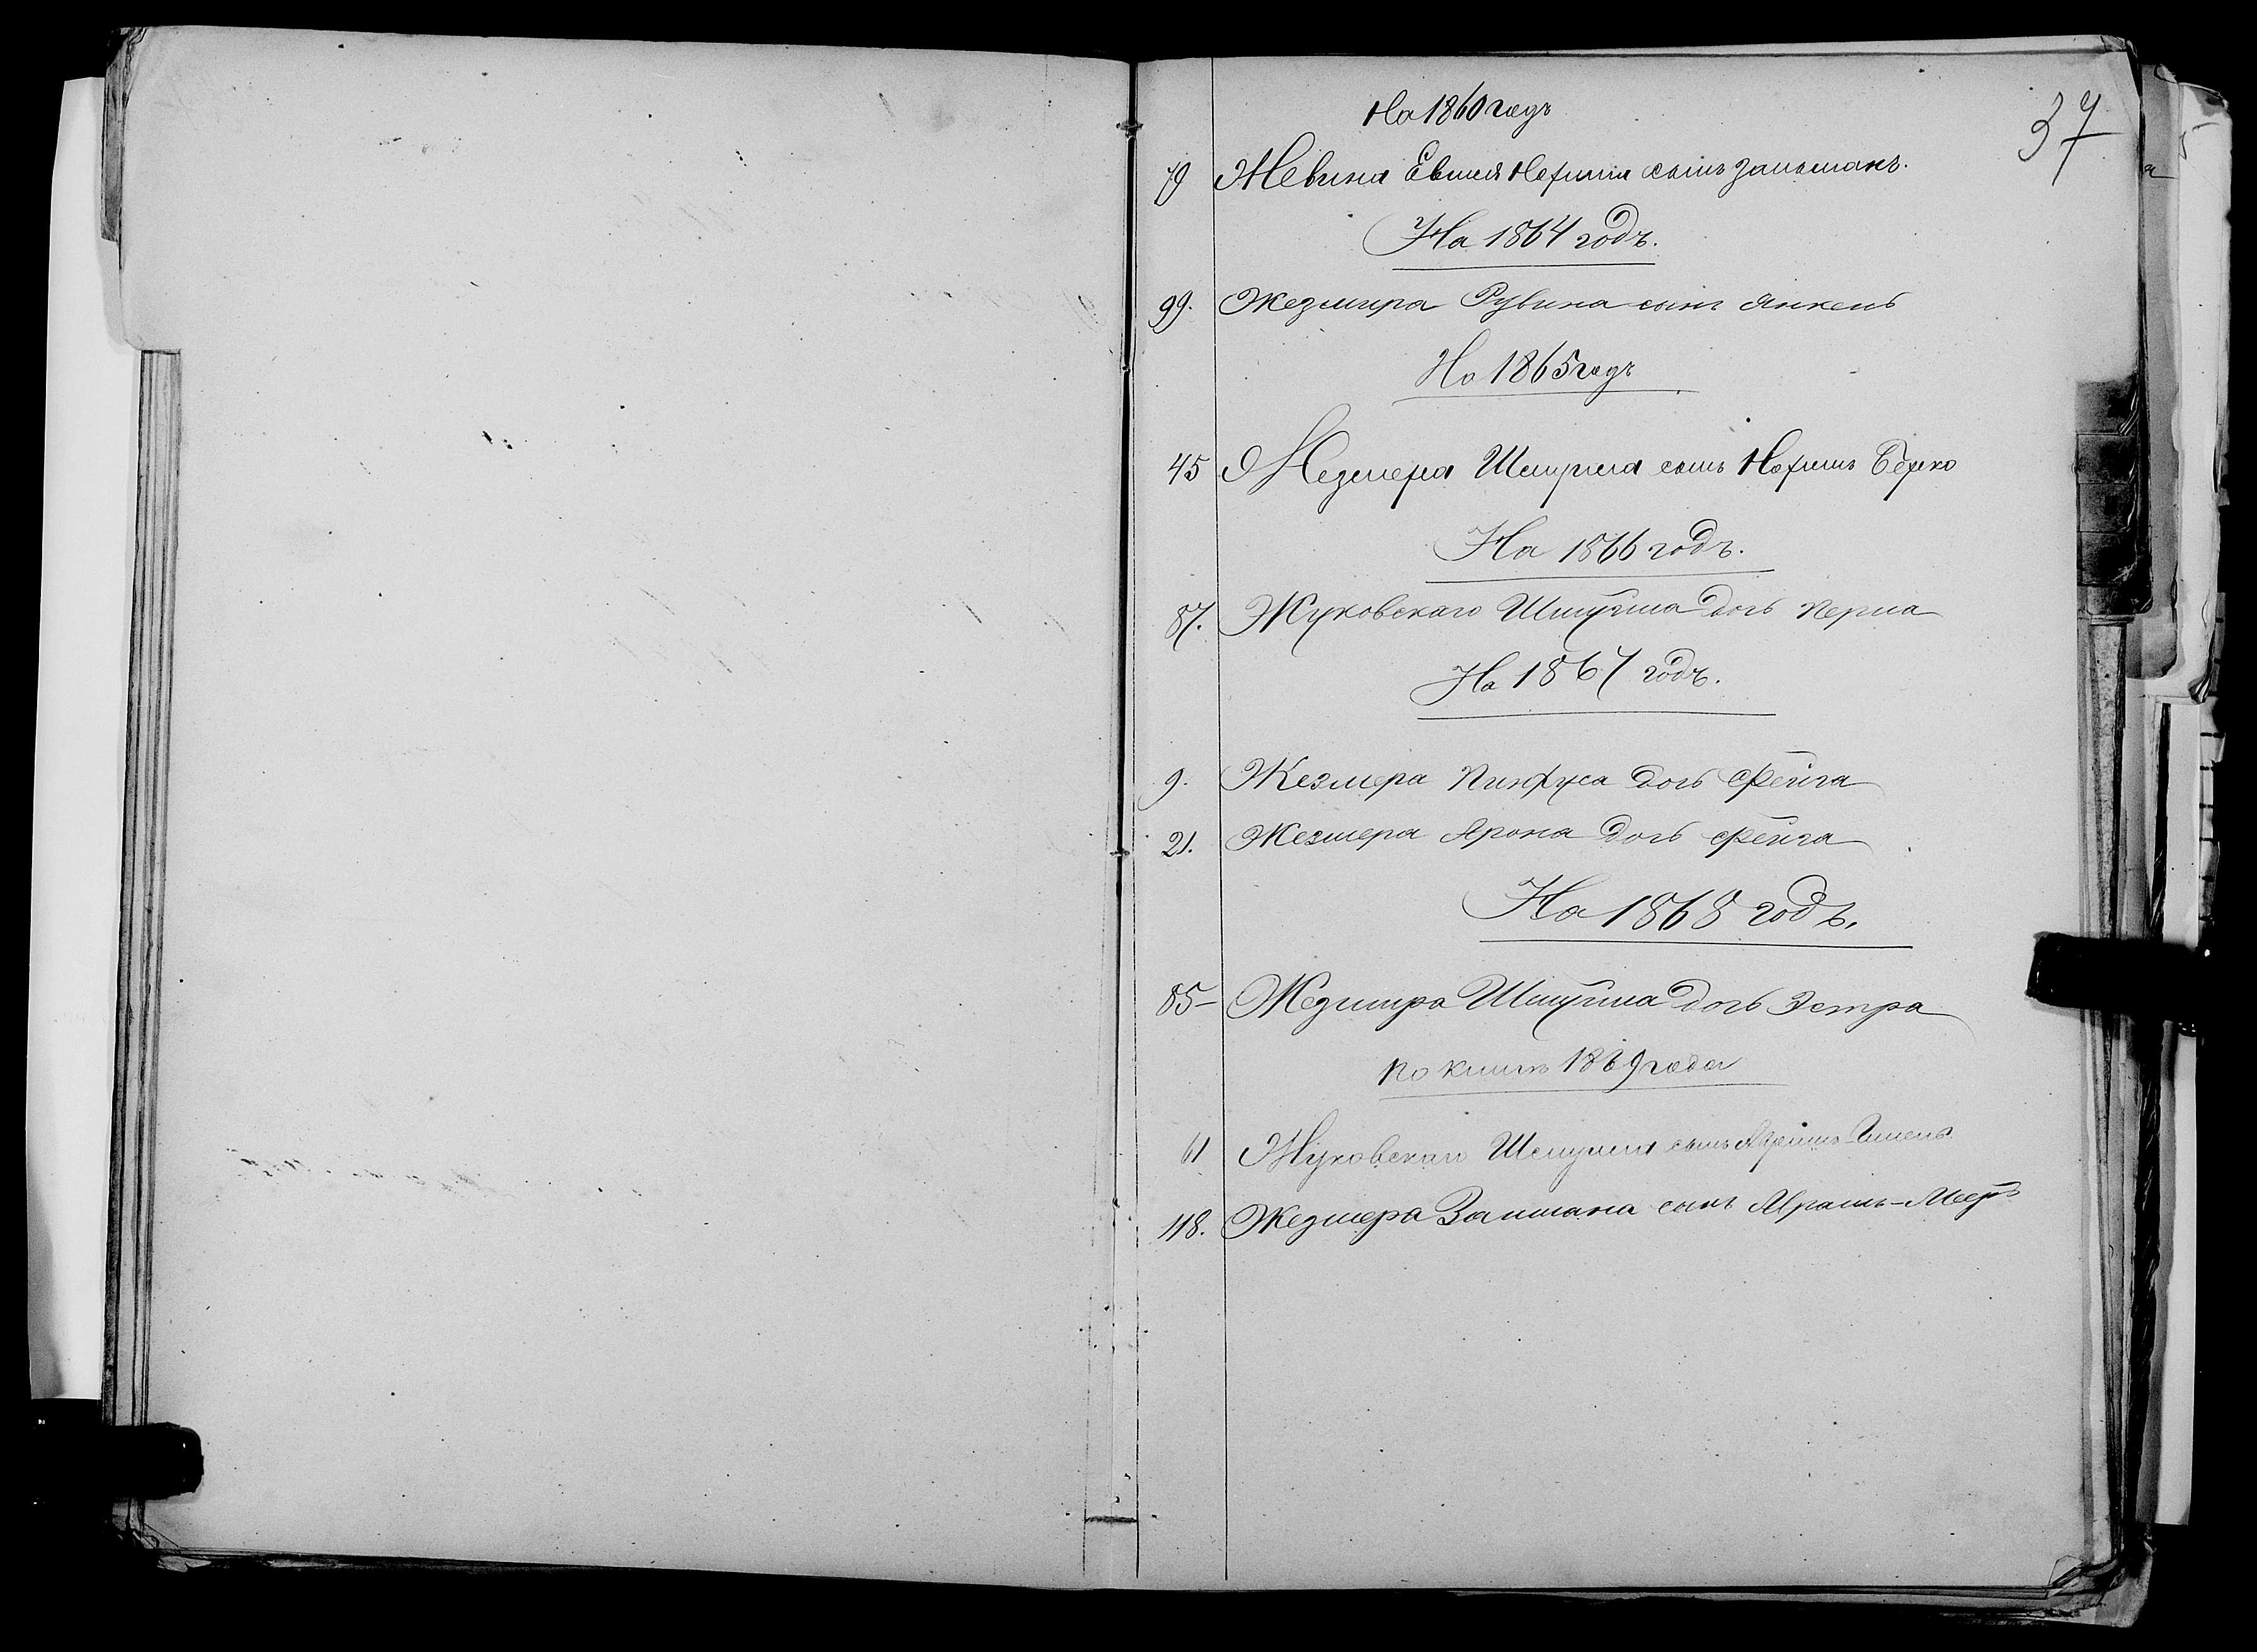 37
На 1860 годъ
79 Жевина Евшея Нохима сынъ Зальманъ.
На 1864 годъ.
99. Жезмира Рувина сынъ Янкель
На 1865 годъ
45 Жезмера Шмуила сынъ Нохимъ Берко
На 1866 годъ.
87. Жуковскаго Шмуйла дочь Перла
На 1867 годъ.
9. Жезмера Пинхуса дочь Фейга
21. Жезмера Арона дочь Фейга
На 1868 годъ.
85- Жезмира Шмуйла дочь Эстра
По книгѣ 1869 года
61 Жуковскаго Шмуила сынъ
118. Жезмера Залмана сынъ Абрамъ-Меер